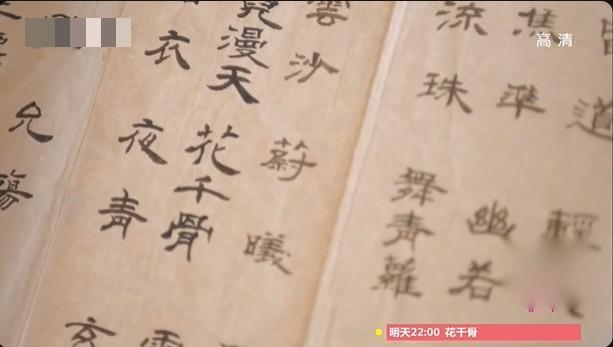 高清
道
輕
準
幽若
流珠
舞青蘿
雲沙
蔚曦
漫天
花千骨
衣
夜青
玄
允
明天22:00 花千骨